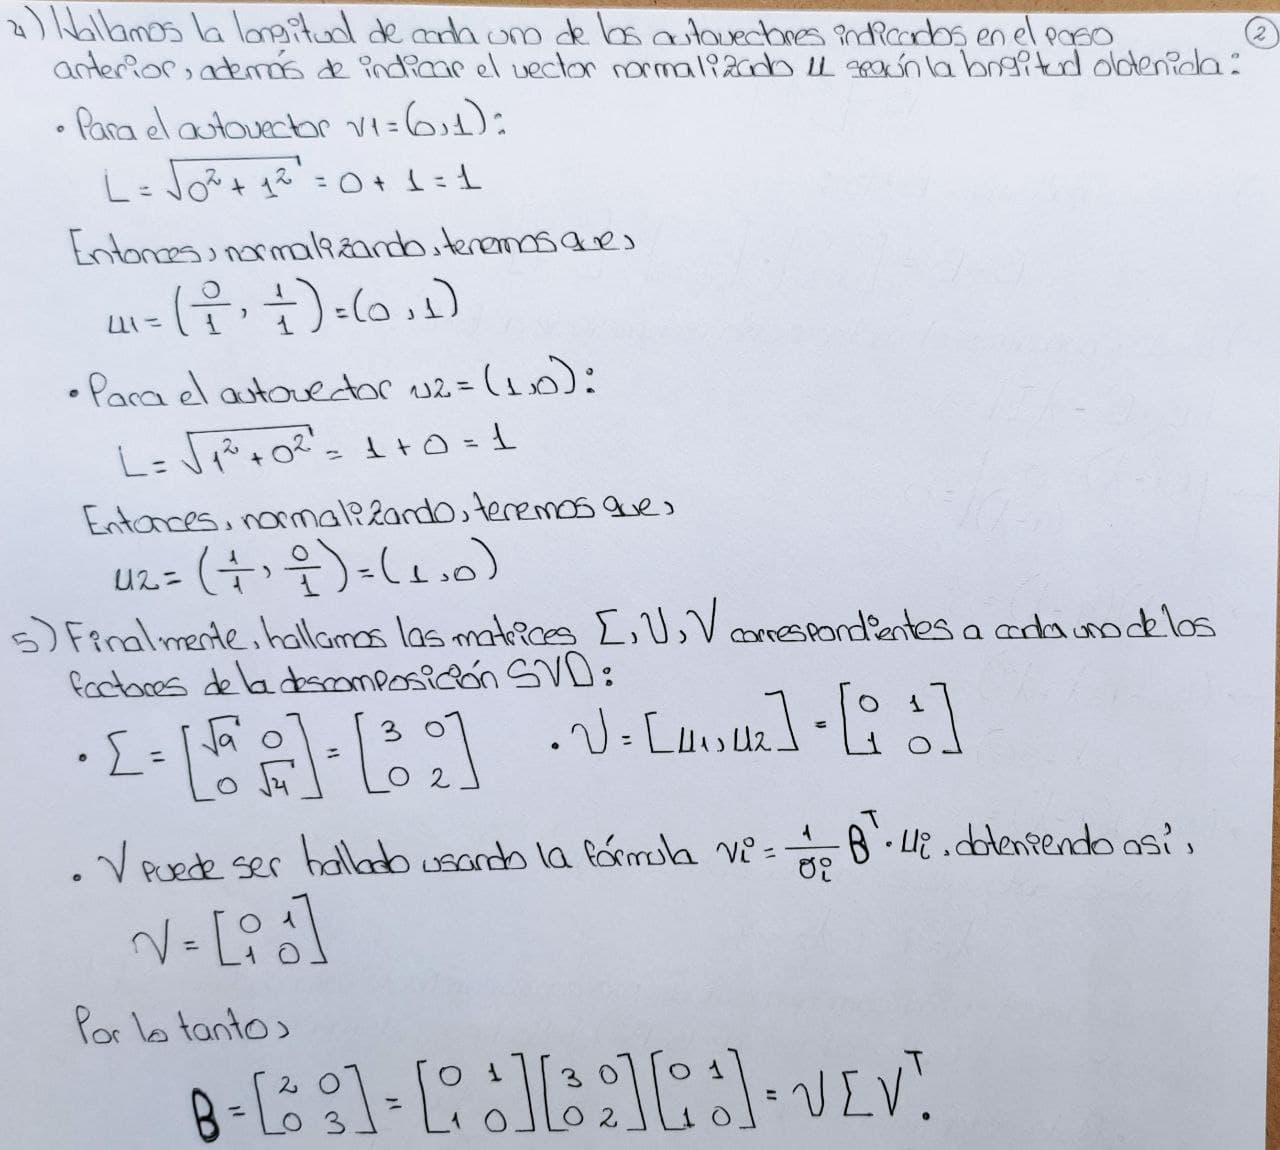 ②
4) Hallamos la longitud de cada uno de los autovectores indicados en el paso
anterior, además de indicar el vector normalizado u según la longitud obtenida:
• Para el autovector v1 = (0,1):
L = √(0² + 1²) = 0 + 1 = 1
Entonces, normalizando, tenemos que,
u1 = (0/1, 1/1) = (0, 1)
• Para el autovector v2 = (1,0):
L = √(1² + 0²) = 1 + 0 = 1
Entonces, normalizando, tenemos que,
u2 = (1/1, 0/1) = (1, 0)
5) Finalmente, hallamos las matrices Σ, U, V correspondientes a cada uno de los
factores de la descomposición SVD:
• Σ = [√9 0; 0 √4] = [3 0; 0 2] • U = [u1, u2] = [0 1; 1 0]
• V puede ser hallado usando la fórmula vi = 1/σi Bᵀ · ui, obteniendo así,
V = [0 1; 1 0]
Por lo tanto,
B = [2 0; 0 3] = [0 1; 1 0] [3 0; 0 2] [0 1; 1 0] = U Σ Vᵀ.